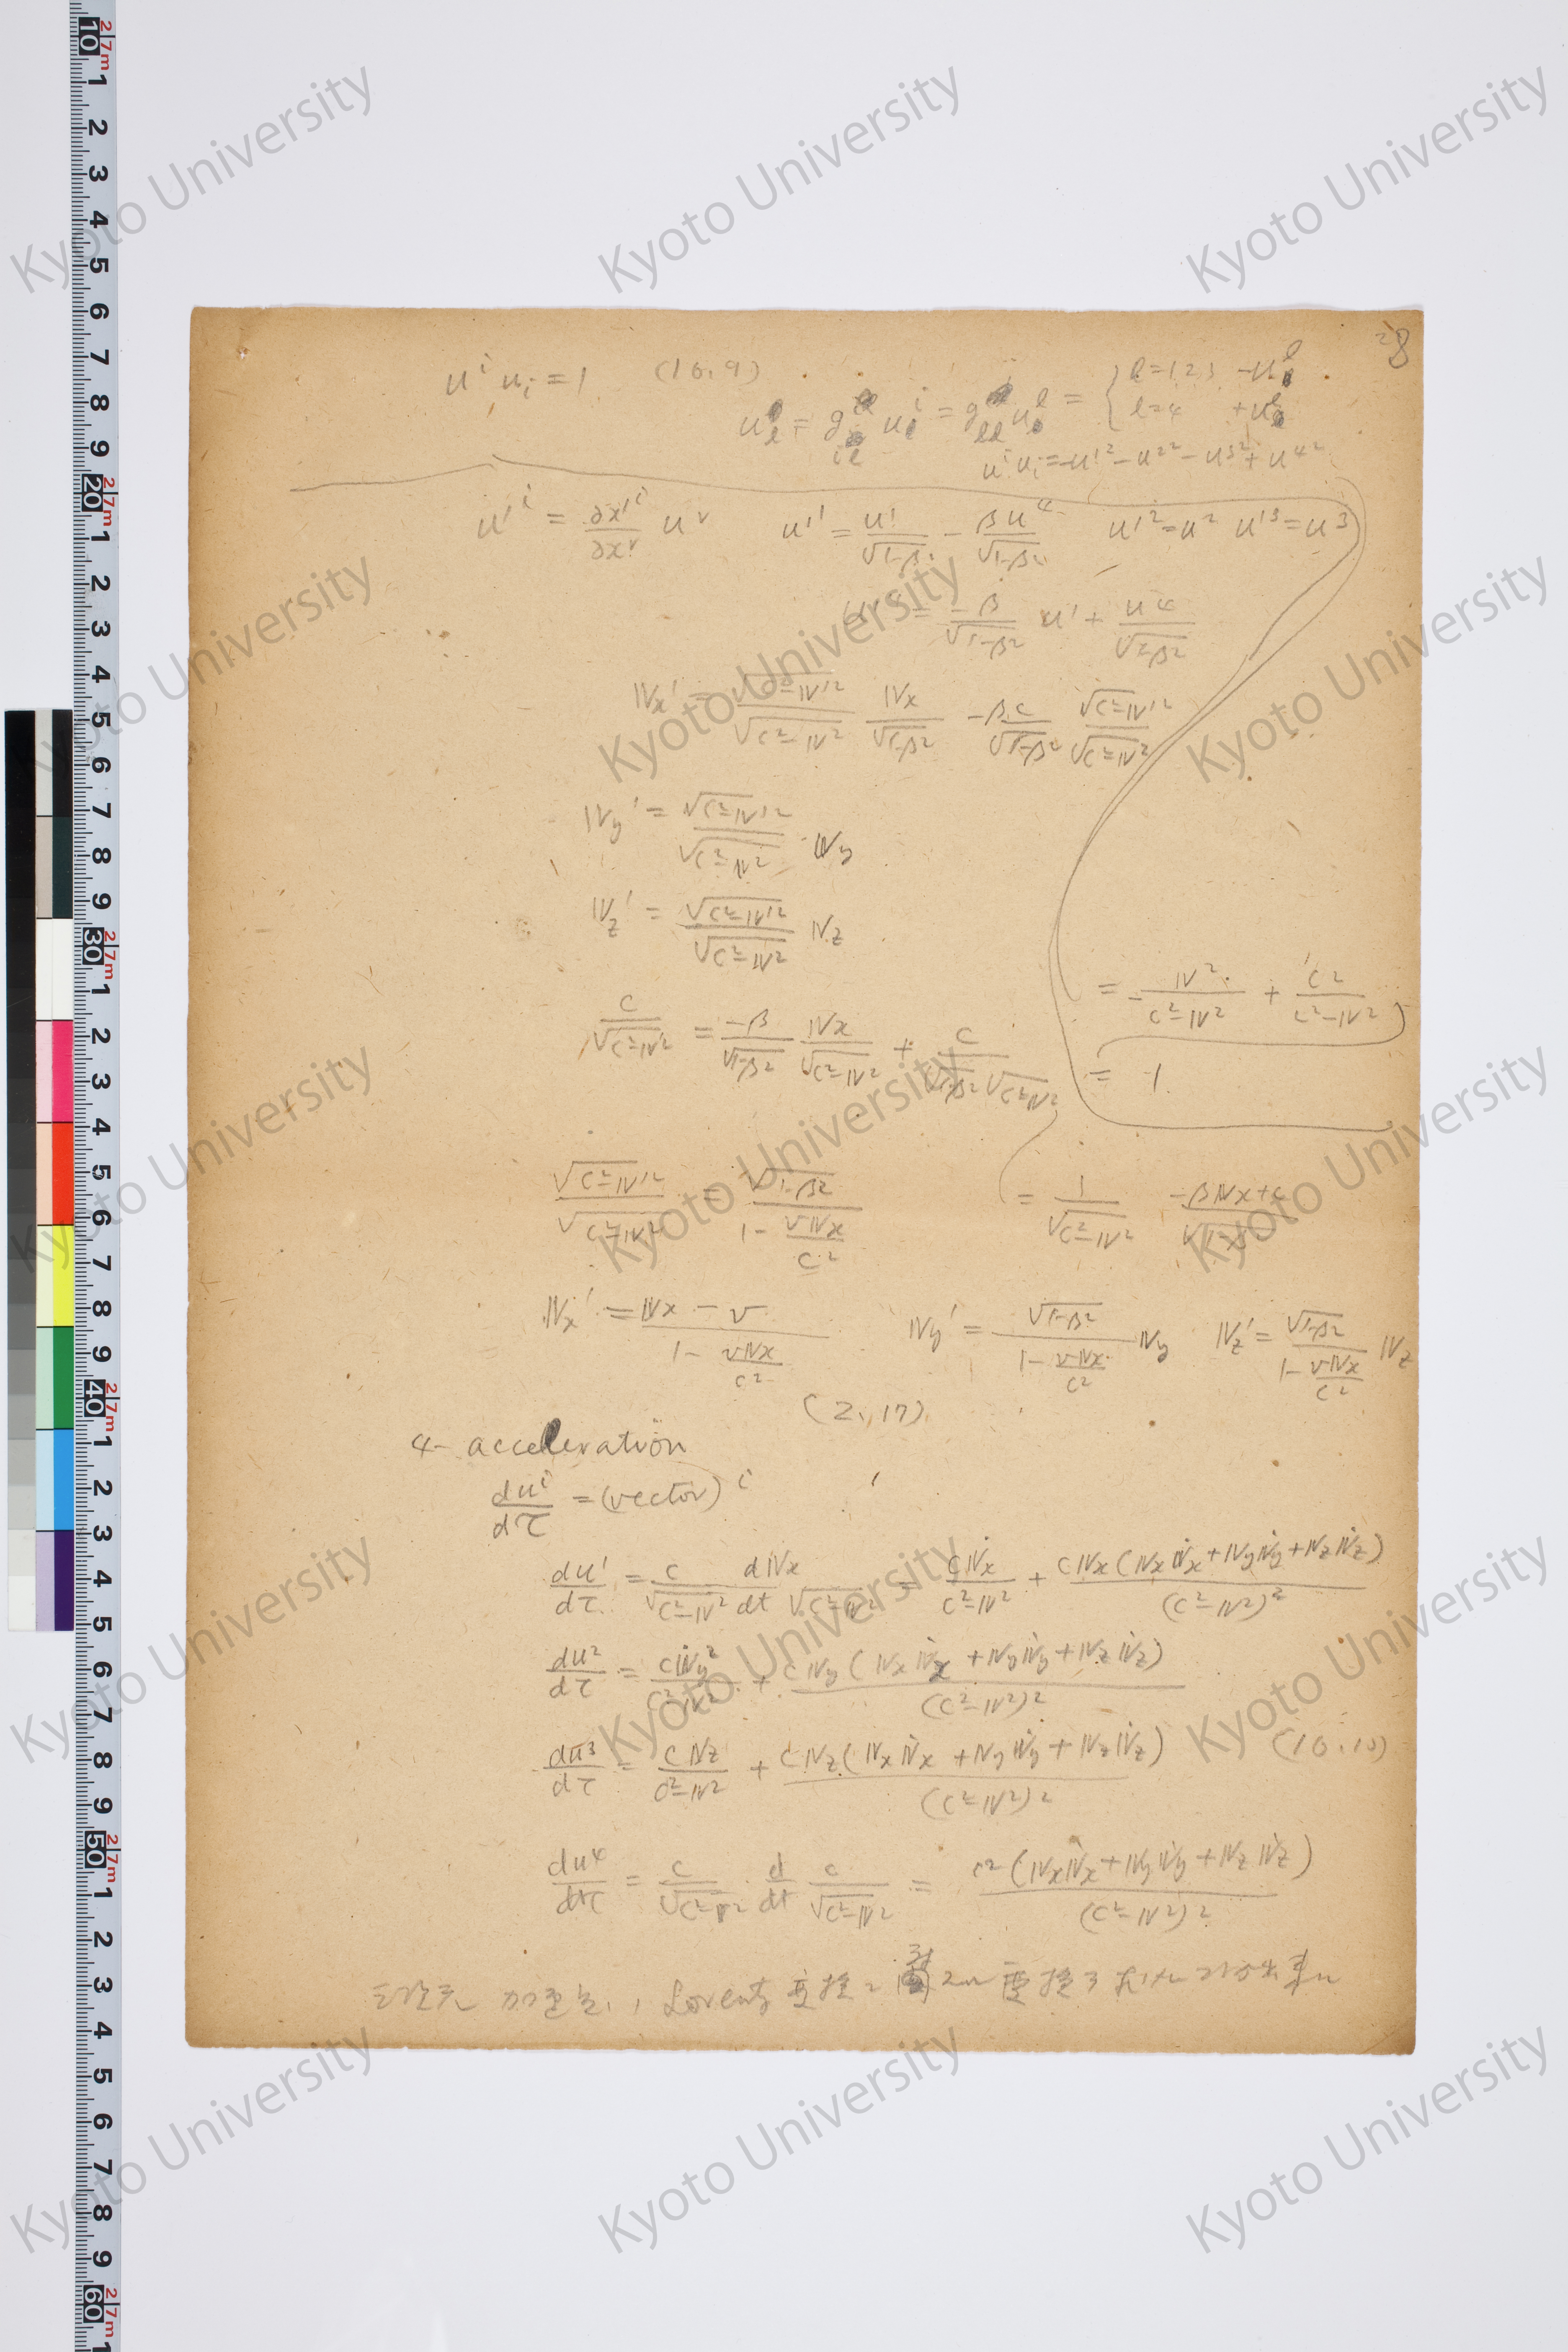 28
uⁱ uᵢ = 1 (10.9)
u_l = g_{il} uⁱ = g_{ll} u^l = { l=1 2 3 −u^l
l=4 +u^l
uⁱuᵢ = −u¹² − u²² − u³² + u⁴²
u'ⁱ = ∂x'ⁱ/∂xʳ uʳ u'¹ = u¹/√(1−β²) − βu⁴/√(1−β²) u'² = u² u'³ = u³
u'⁴ = −β/√(1−β²) u¹ + u⁴/√(1−β²)
𝕍x' = √(c²−𝕍'²)/√(c²−𝕍²) 𝕍x/√(1−β²) − βc/√(1−β²) √(c²−𝕍'²)/√(c²−𝕍²)
𝕍y' = √(c²−𝕍'²)/√(c²−𝕍²) 𝕍y
𝕍z' = √(c²−𝕍'²)/√(c²−𝕍²) 𝕍z
= −𝕍²/(c²−𝕍²) + c²/(c²−𝕍²)
= 1
c/√(c²−𝕍'²) = −β/√(1−β²) 𝕍x/√(c²−𝕍²) + c/(√(1−β²)√(c²−𝕍²))
= 1/√(c²−𝕍²) (−β𝕍x+c)/√(1−β²)
√(c²−𝕍'²)/√(c²−𝕍²) = √(1−β²)/(1 − v𝕍x/c²)
𝕍x' = (𝕍x − v)/(1 − v𝕍x/c²) 𝕍y' = √(1−β²)/(1 − v𝕍x/c²) 𝕍y 𝕍z' = √(1−β²)/(1 − v𝕍x/c²) 𝕍z
(2.17)
4- acceleration
duⁱ/dτ = (vector)ⁱ
du¹/dτ = c/√(c²−𝕍²) d/dt 𝕍x/√(c²−𝕍²) = c𝕍̇x/(c²−𝕍²) + c𝕍x(𝕍x𝕍̇x+𝕍y𝕍̇y+𝕍z𝕍̇z)/(c²−𝕍²)²
du²/dτ = c𝕍̇y/(c²−𝕍²) + c𝕍y(𝕍x𝕍̇x+𝕍y𝕍̇y+𝕍z𝕍̇z)/(c²−𝕍²)²
du³/dτ = c𝕍z/(c²−𝕍²) + c𝕍z(𝕍x𝕍̇x+𝕍y𝕍̇y+𝕍z𝕍̇z)/(c²−𝕍²)² (10.10)
du⁴/dτ = c/√(c²−𝕍²) · d/dt c/√(c²−𝕍²) = c²(𝕍x𝕍̇x+𝕍y𝕍̇y+𝕍z𝕍̇z)/(c²−𝕍²)²
加速度 Lorentz 変換
Kyoto University